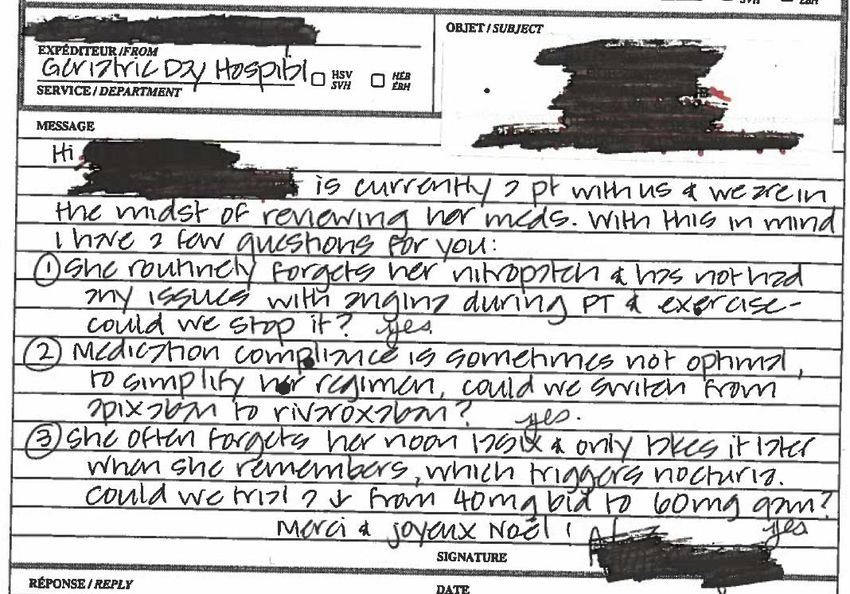 SVH ÉBH
EXPÉDITEUR / FROM
Geriatric Day Hospital HSV SVH HÉB ÉBH
SERVICE / DEPARTMENT
OBJET / SUBJECT
MESSAGE
Hi
is currently a pt with us & we are in
the midst of reviewing her meds. With this in mind
I have a few questions for you:
① She routinely forgets her nitropatch & has not had
any issues with angina during PT & exercise-
could we stop it? yes
② Medication compliance is sometimes not optimal,
to simplify her regimen, could we switch from
apixaban to rivaroxaban? yes.
③ She often forgets her noon lasix & only takes it later
when she remembers, which triggers nocturia.
Could we trial a ↓ from 40mg bid to 60mg qam?
Merci & joyeux Noël! yes
SIGNATURE
RÉPONSE / REPLY
DATE